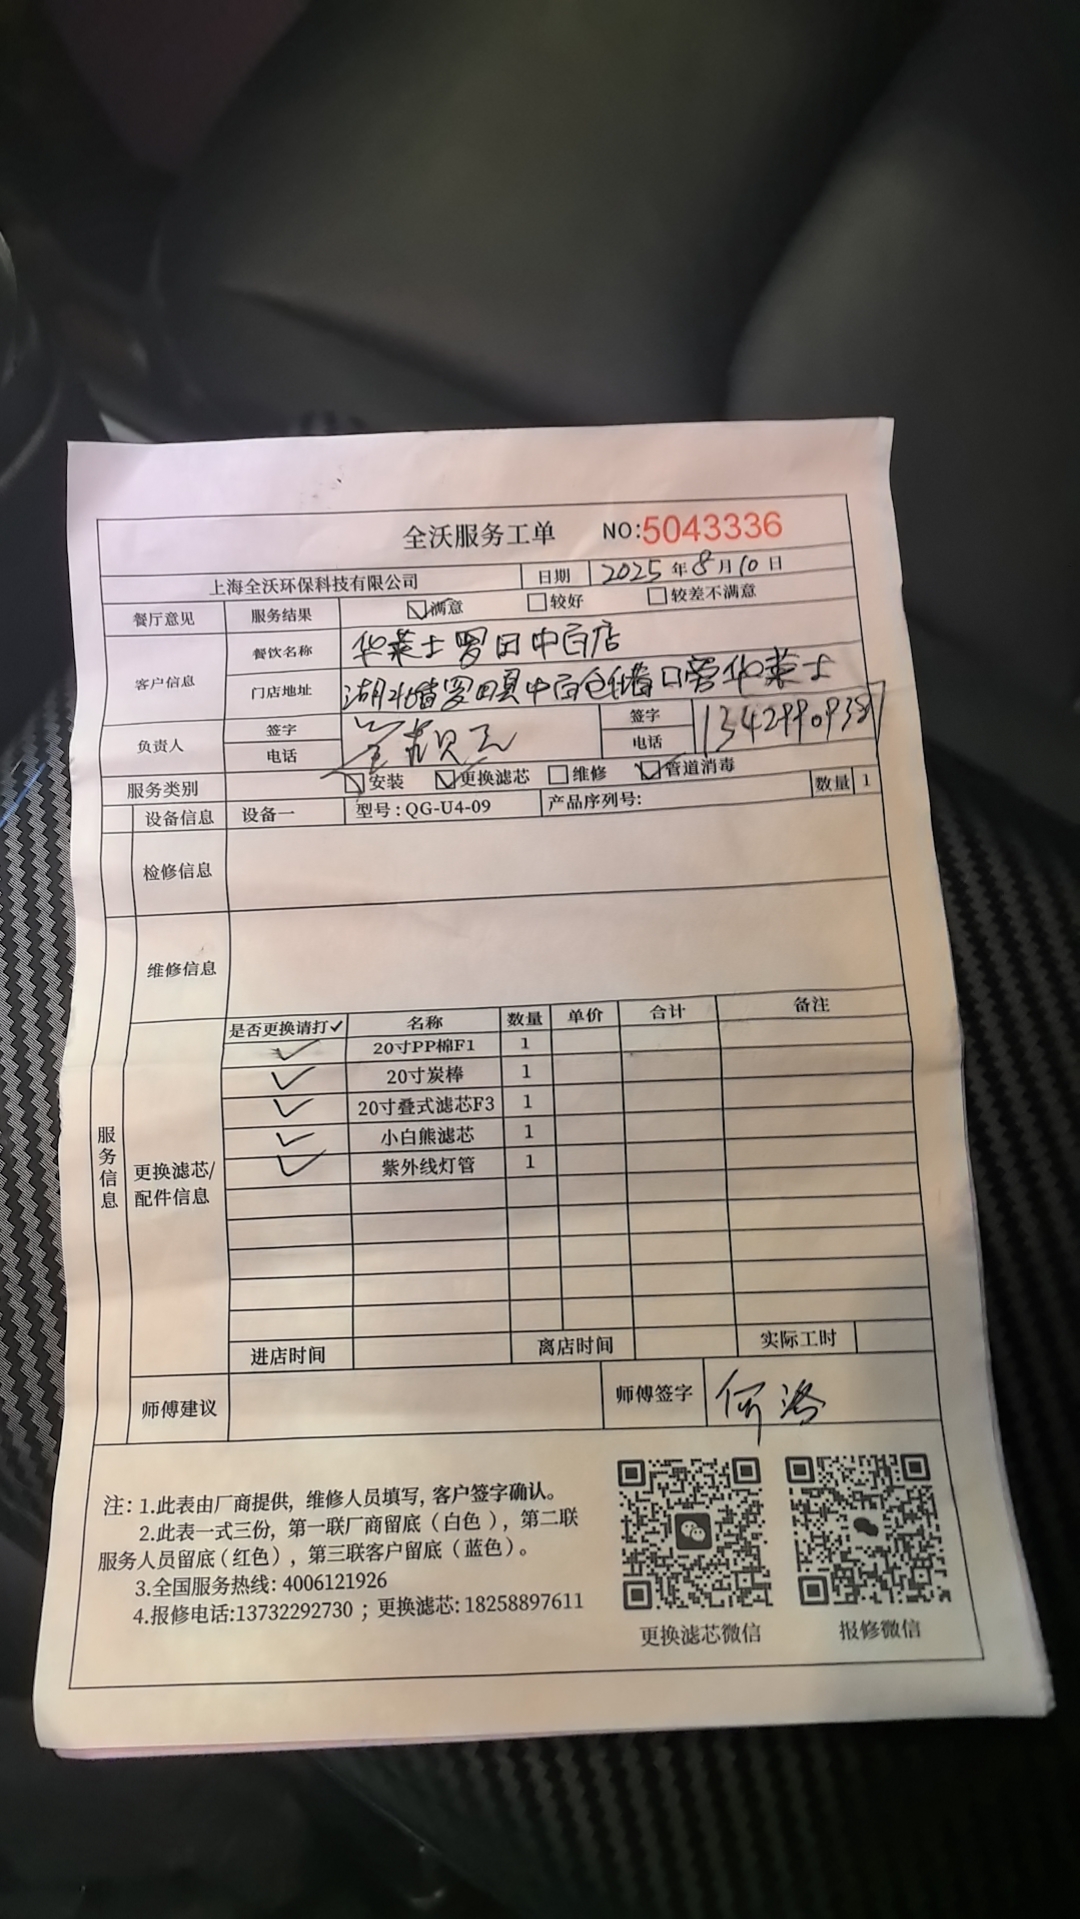 全沃服务工单 NO:5043336
上海全沃环保科技有限公司 日期 2025年8月10日
餐厅意见 服务结果 满意 较好 较差不满意
客户信息 餐饮名称 华莱士罗田中百店
门店地址 湖北省罗田县中百仓储 口旁华莱士
负责人 签字 签字
电话 电话
服务类别 安装 更换滤芯 维修 管道消毒
设备信息 设备一 型号:QG-U4-09 产品序列号: 数量 1
检修信息
维修信息
服务信息
更换滤芯/
配件信息
是否更换请打✓ 名称 数量 单价 合计 备注
✓ 20寸PP棉F1 1
✓ 20寸炭棒 1
✓ 20寸叠式滤芯F3 1
✓ 小白熊滤芯 1
✓ 紫外线灯管 1
进店时间 离店时间 实际工时
师傅建议 师傅签字 何
注: 1.此表由厂商提供, 维修人员填写, 客户签字确认。
2.此表一式三份, 第一联厂商留底(白色), 第二联
服务人员留底(红色), 第三联客户留底(蓝色)。
3.全国服务热线: 4006121926
4.报修电话:13732292730 ; 更换滤芯: 18258897611
更换滤芯微信 报修微信